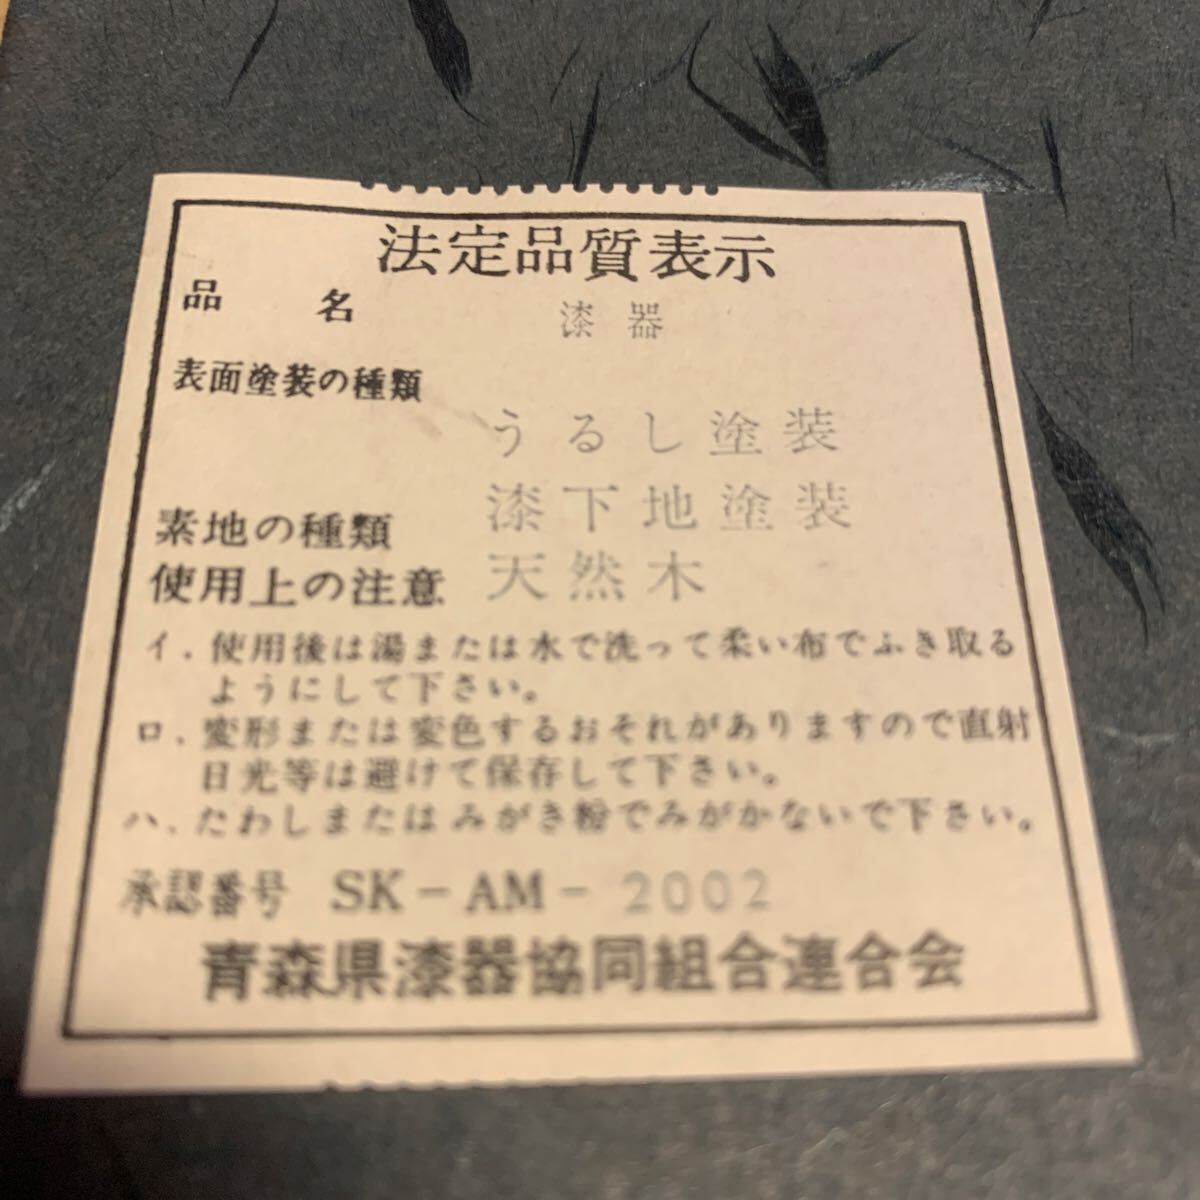 法定品質表示
品名 漆器
表面塗装の種類
うるし塗装
漆下地塗装
素地の種類
天然木
使用上の注意
イ．使用後は湯または水で洗って柔い布でふき取る
ようにして下さい。
ロ．変形または変色するおそれがありますので直射
日光等は避けて保存して下さい。
ハ．たわしまたはみがき粉でみがかないで下さい。
承認番号 SK－AM－2002
青森県漆器協同組合連合会